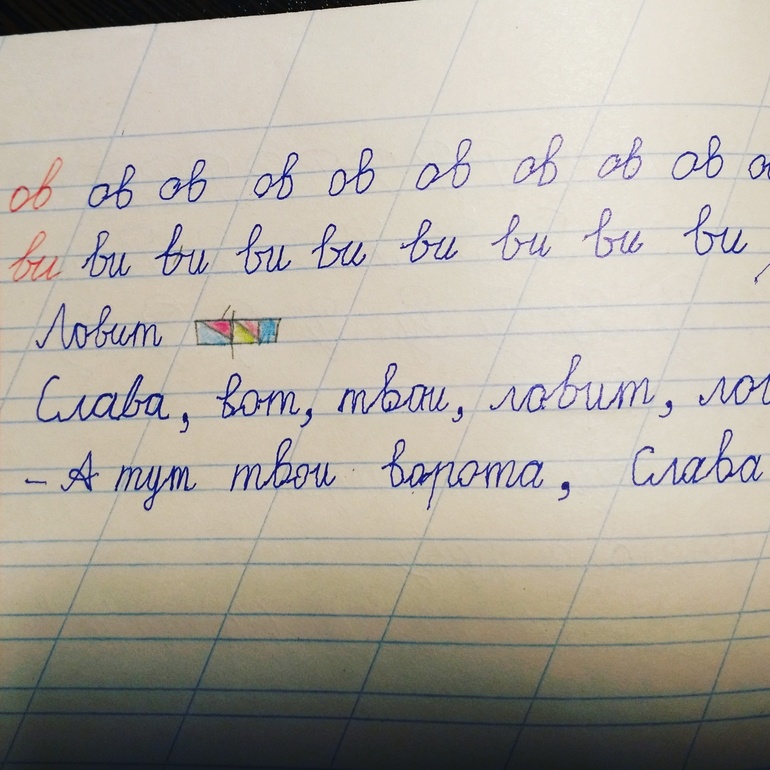 ов ов ов ов ов ов ов ов ов
ви ви ви ви ви ви ви ви ви
Ловит
Слава, вот, твои, ловит,
– А тут твои ворота, Слава